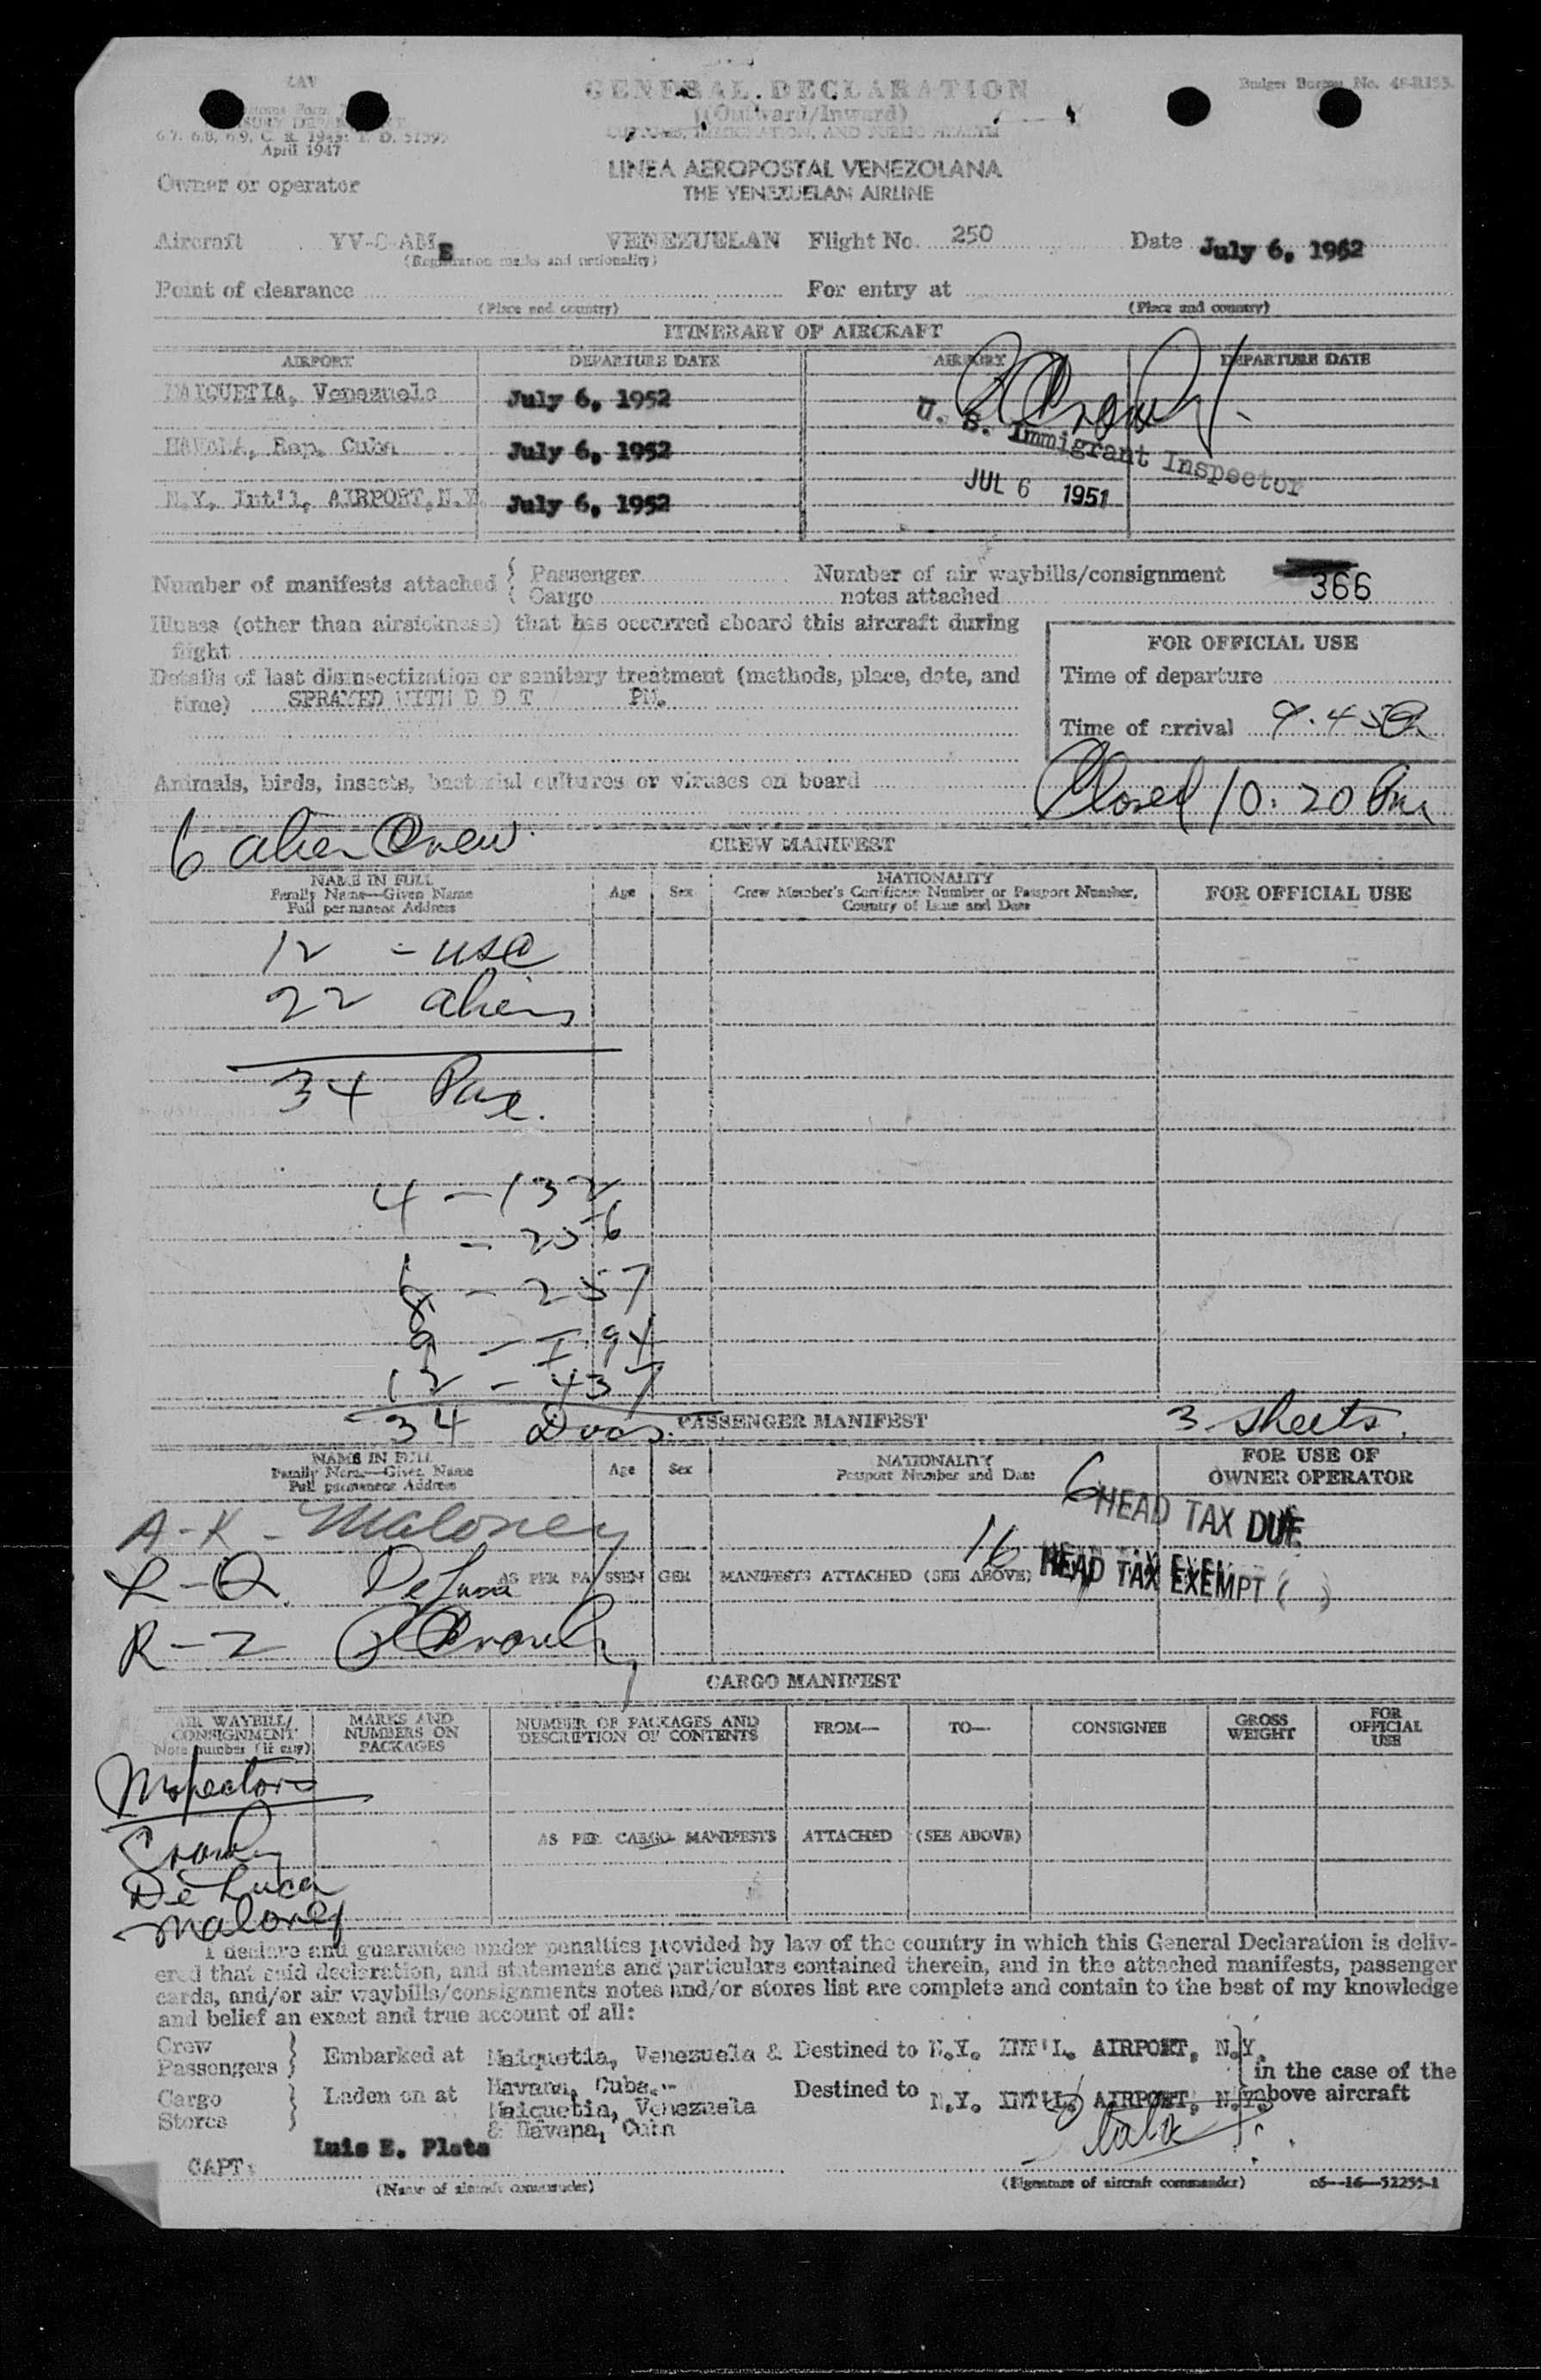 LAV
GENERAL DECLARATION
Budget Bureau No. 48-R153.
(Outward/Inward)
CUSTOMS, IMMIGRATION, AND PUBLIC HEALTH
April 1947
LINEA AEROPOSTAL VENEZOLANA
Owner or operator
THE VENEZUELAN AIRLINE
Aircraft YV-C-AME VENEZUELAN Flight No. 250 Date July 6, 1952
(Registration marks and nationality)
Point of clearance For entry at
(Place and country) (Place and country)
ITINERARY OF AIRCRAFT
AIRPORT DEPARTURE DATE AIRPORT DEPARTURE DATE
MAIQUETIA, Venezuela July 6, 1952
U. S. Immigrant Inspector
HAVANA, Rep. Cuba July 6, 1952
JUL 6 1951
N.Y. Int'l, AIRPORT, N.Y. July 6, 1952
Number of manifests attached { Passenger Number of air waybills/consignment
Cargo notes attached 366
Illness (other than airsickness) that has occurred aboard this aircraft during
flight
FOR OFFICIAL USE
Details of last disinsectization or sanitary treatment (methods, place, date, and
Time of departure
time) SPRAYED WITH D D T PM.
Time of arrival 9.45
Animals, birds, insects, bacterial cultures or viruses on board
Closed 10:20 Pm
6 alien Crew
CREW MANIFEST
NAME IN FULL
Family Name—Given Name
Full permanent Address
Age Sex
NATIONALITY
Crew Member's Certificate Number or Passport Number,
Country of Issue and Date
FOR OFFICIAL USE
12 - USC
22 aliens
34 Pax.
4 - 132
- 256
- 257
9 - I 94
12 - 437
34 Docs.
PASSENGER MANIFEST
3 sheets.
NAME IN FULL
Family Name—Given Name
Full permanent Address
Age Sex
NATIONALITY
Passport Number and Date
FOR USE OF
OWNER OPERATOR
6 HEAD TAX DUE
A-K - Maloney
16 HEAD TAX EXEMPT ( )
L-Q. DeLuca
AS PER PASSENGER MANIFESTS ATTACHED (SEE ABOVE)
R-Z Crowley
CARGO MANIFEST
AIR WAYBILL/
CONSIGNMENT
Note number (if any)
MARKS AND
NUMBERS ON
PACKAGES
NUMBER OF PACKAGES AND
DESCRIPTION OF CONTENTS
FROM— TO— CONSIGNEE
GROSS
WEIGHT
FOR
OFFICIAL
USE
Inspectors
AS PER CARGO MANIFESTS ATTACHED (SEE ABOVE)
Crowley
De Luca
Maloney
I declare and guarantee under penalties provided by law of the country in which this General Declaration is deliv-
ered that said declaration, and statements and particulars contained therein, and in the attached manifests, passenger
cards, and/or air waybills/consignments notes and/or stores list are complete and contain to the best of my knowledge
and belief an exact and true account of all:
Crew
Passengers } Embarked at Maiquetia, Venezuela & Destined to N.Y. INT'L. AIRPORT, N.Y.
Havana, Cuba.-
in the case of the
above aircraft
Cargo
Stores } Laden on at Maiquetia, Venezuela Destined to N.Y. INT'L. AIRPORT, N.Y.
& Havana, Cuba
Luis E. Plata
CAPT:
(Name of aircraft commander) (Signature of aircraft commander) c6—16—52255-1